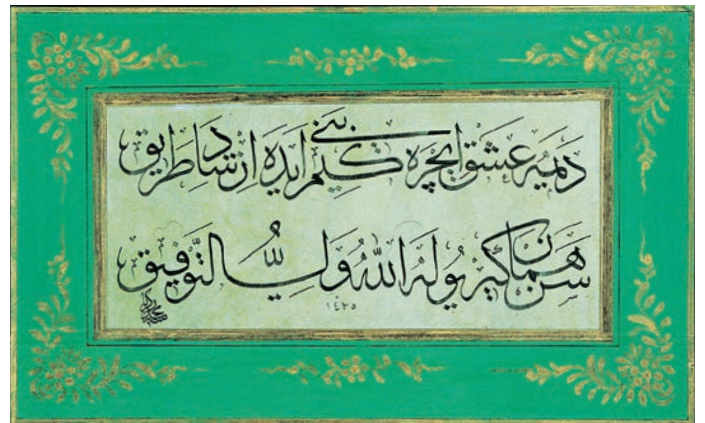 دیمه عشق ایچره بنی کیم ایده ارشاد طریق
سن همان کیر یوله الله ولی التوفیق
١٤٣٥